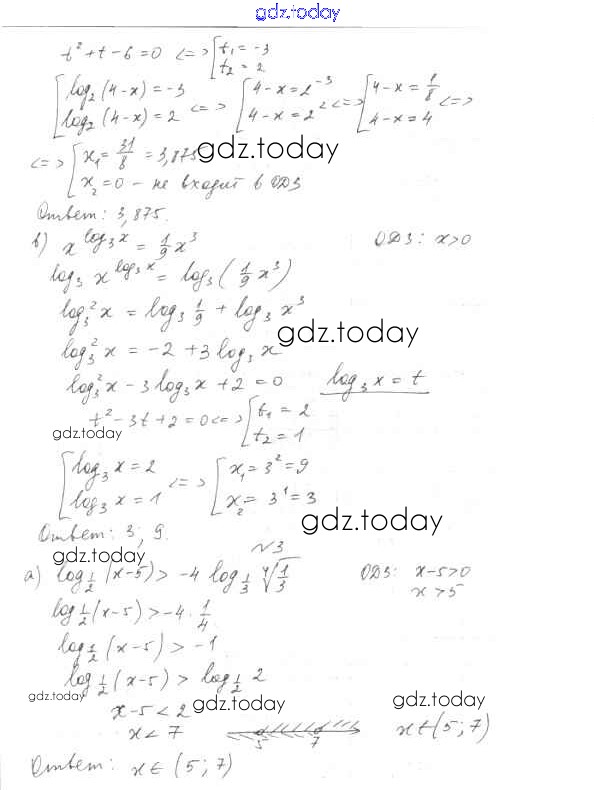 gdz.today
t² + t - 6 = 0 <=> [ t₁ = -3
t₂ = 2
[ log₂(4-x) = -3 <=> [ 4-x = 2⁻³ <=> [ 4-x = 1/8 <=>
log₂(4-x) = 2 4-x = 2² 4-x = 4
<=> [ x₁ = 31/8 = 3,875 gdz.today
x₂ = 0 - не входит в ОДЗ
Ответ: 3,875.
в) x^(log₃x) = 1/9 x³ ОДЗ: x>0
log₃ x^(log₃x) = log₃(1/9 x³)
log₃²x = log₃ 1/9 + log₃ x³
gdz.today
log₃²x = -2 + 3 log₃ x
log₃²x - 3 log₃ x + 2 = 0 log₃ x = t
t² - 3t + 2 = 0 <=> [ t₁ = 2
gdz.today t₂ = 1
[ log₃ x = 2 <=> [ x₁ = 3² = 9
log₃ x = 1 x₂ = 3¹ = 3
gdz.today
Ответ: 3; 9.
№3
gdz.today
а) log_(1/2)(x-5) > -4 log_(1/3) ⁴√(1/3) ОДЗ: x-5>0
x>5
log_(1/2)(x-5) > -4 · 1/4
log_(1/2)(x-5) > -1
log_(1/2)(x-5) > log_(1/2) 2
gdz.today gdz.today gdz.today
x-5 < 2
x < 7 5 7 x∈(5;7)
Ответ: x∈(5;7)